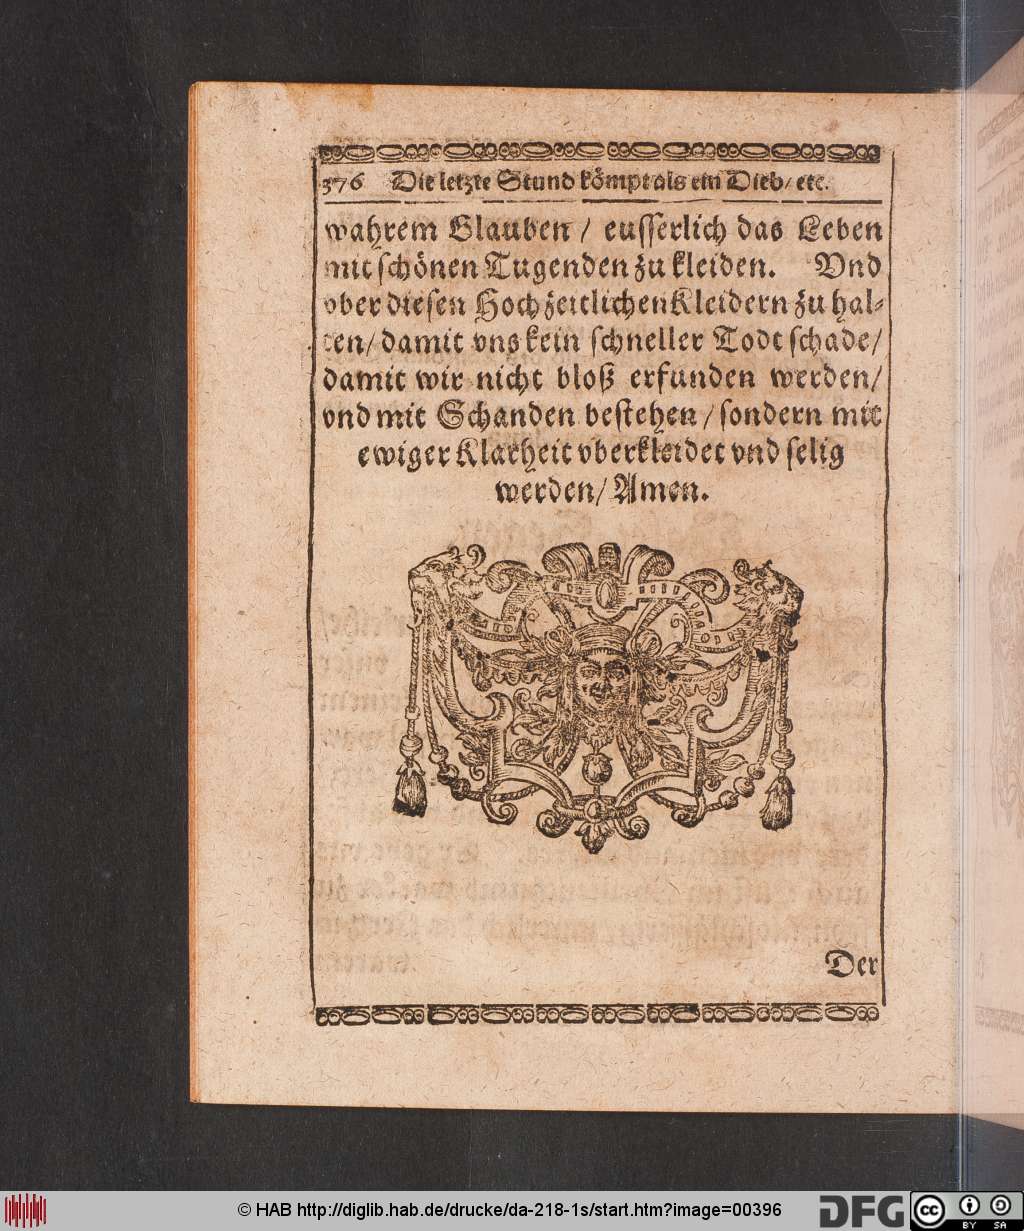 376 Die letzte Stund kömpt als ein Dieb / etc.
wahrem Glauben / eusserlich das Leben
mit schönen Tugenden zu kleiden. Vnd
vber diesen Hochzeitlichen Kleidern zu hal-
ten / damit vns kein schneller Todt schade /
damit wir nicht bloß erfunden werden /
vnd mit Schanden bestehen / sondern mit
ewiger Klarheit vberkleidet vnd selig
werden / Amen.
Der
© HAB http://diglib.hab.de/drucke/da-218-1s/start.htm?image=00396
DFG
cc
BY SA